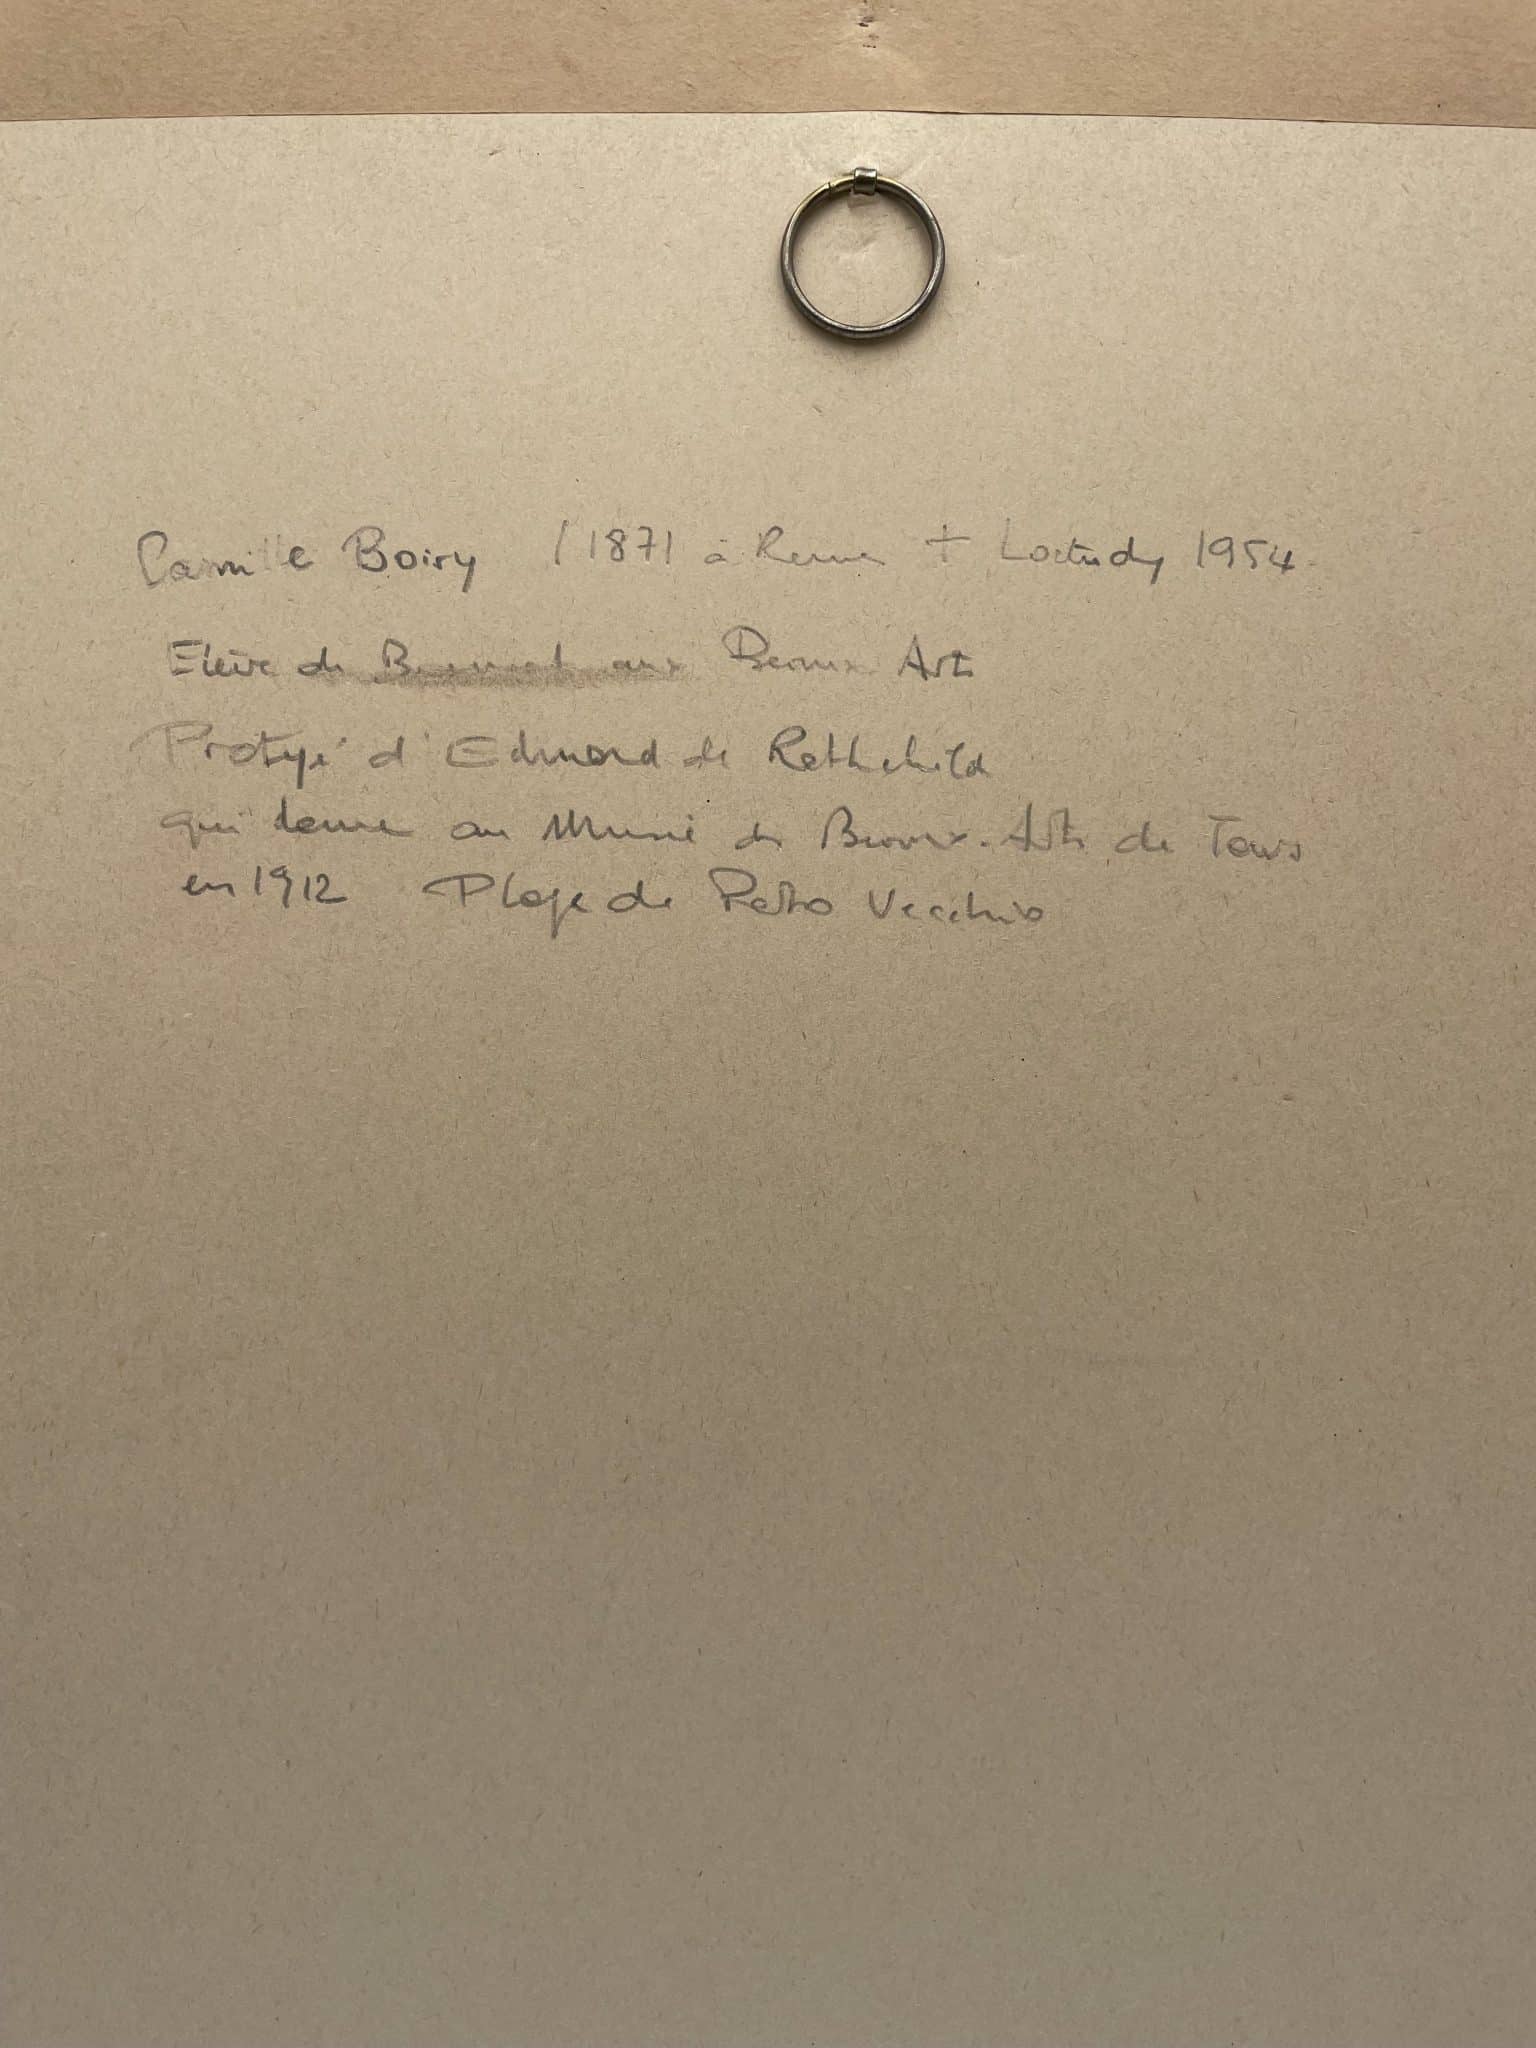 Camille Boiry (1871 à Rennes + Loctudy 1954
Elève de Bonnat aux Beaux Arts
Protégé d'Edmond de Rothchild
qui donne au Musée des Beaux-Arts de Tours
en 1912 Plage de Porto Vecchio